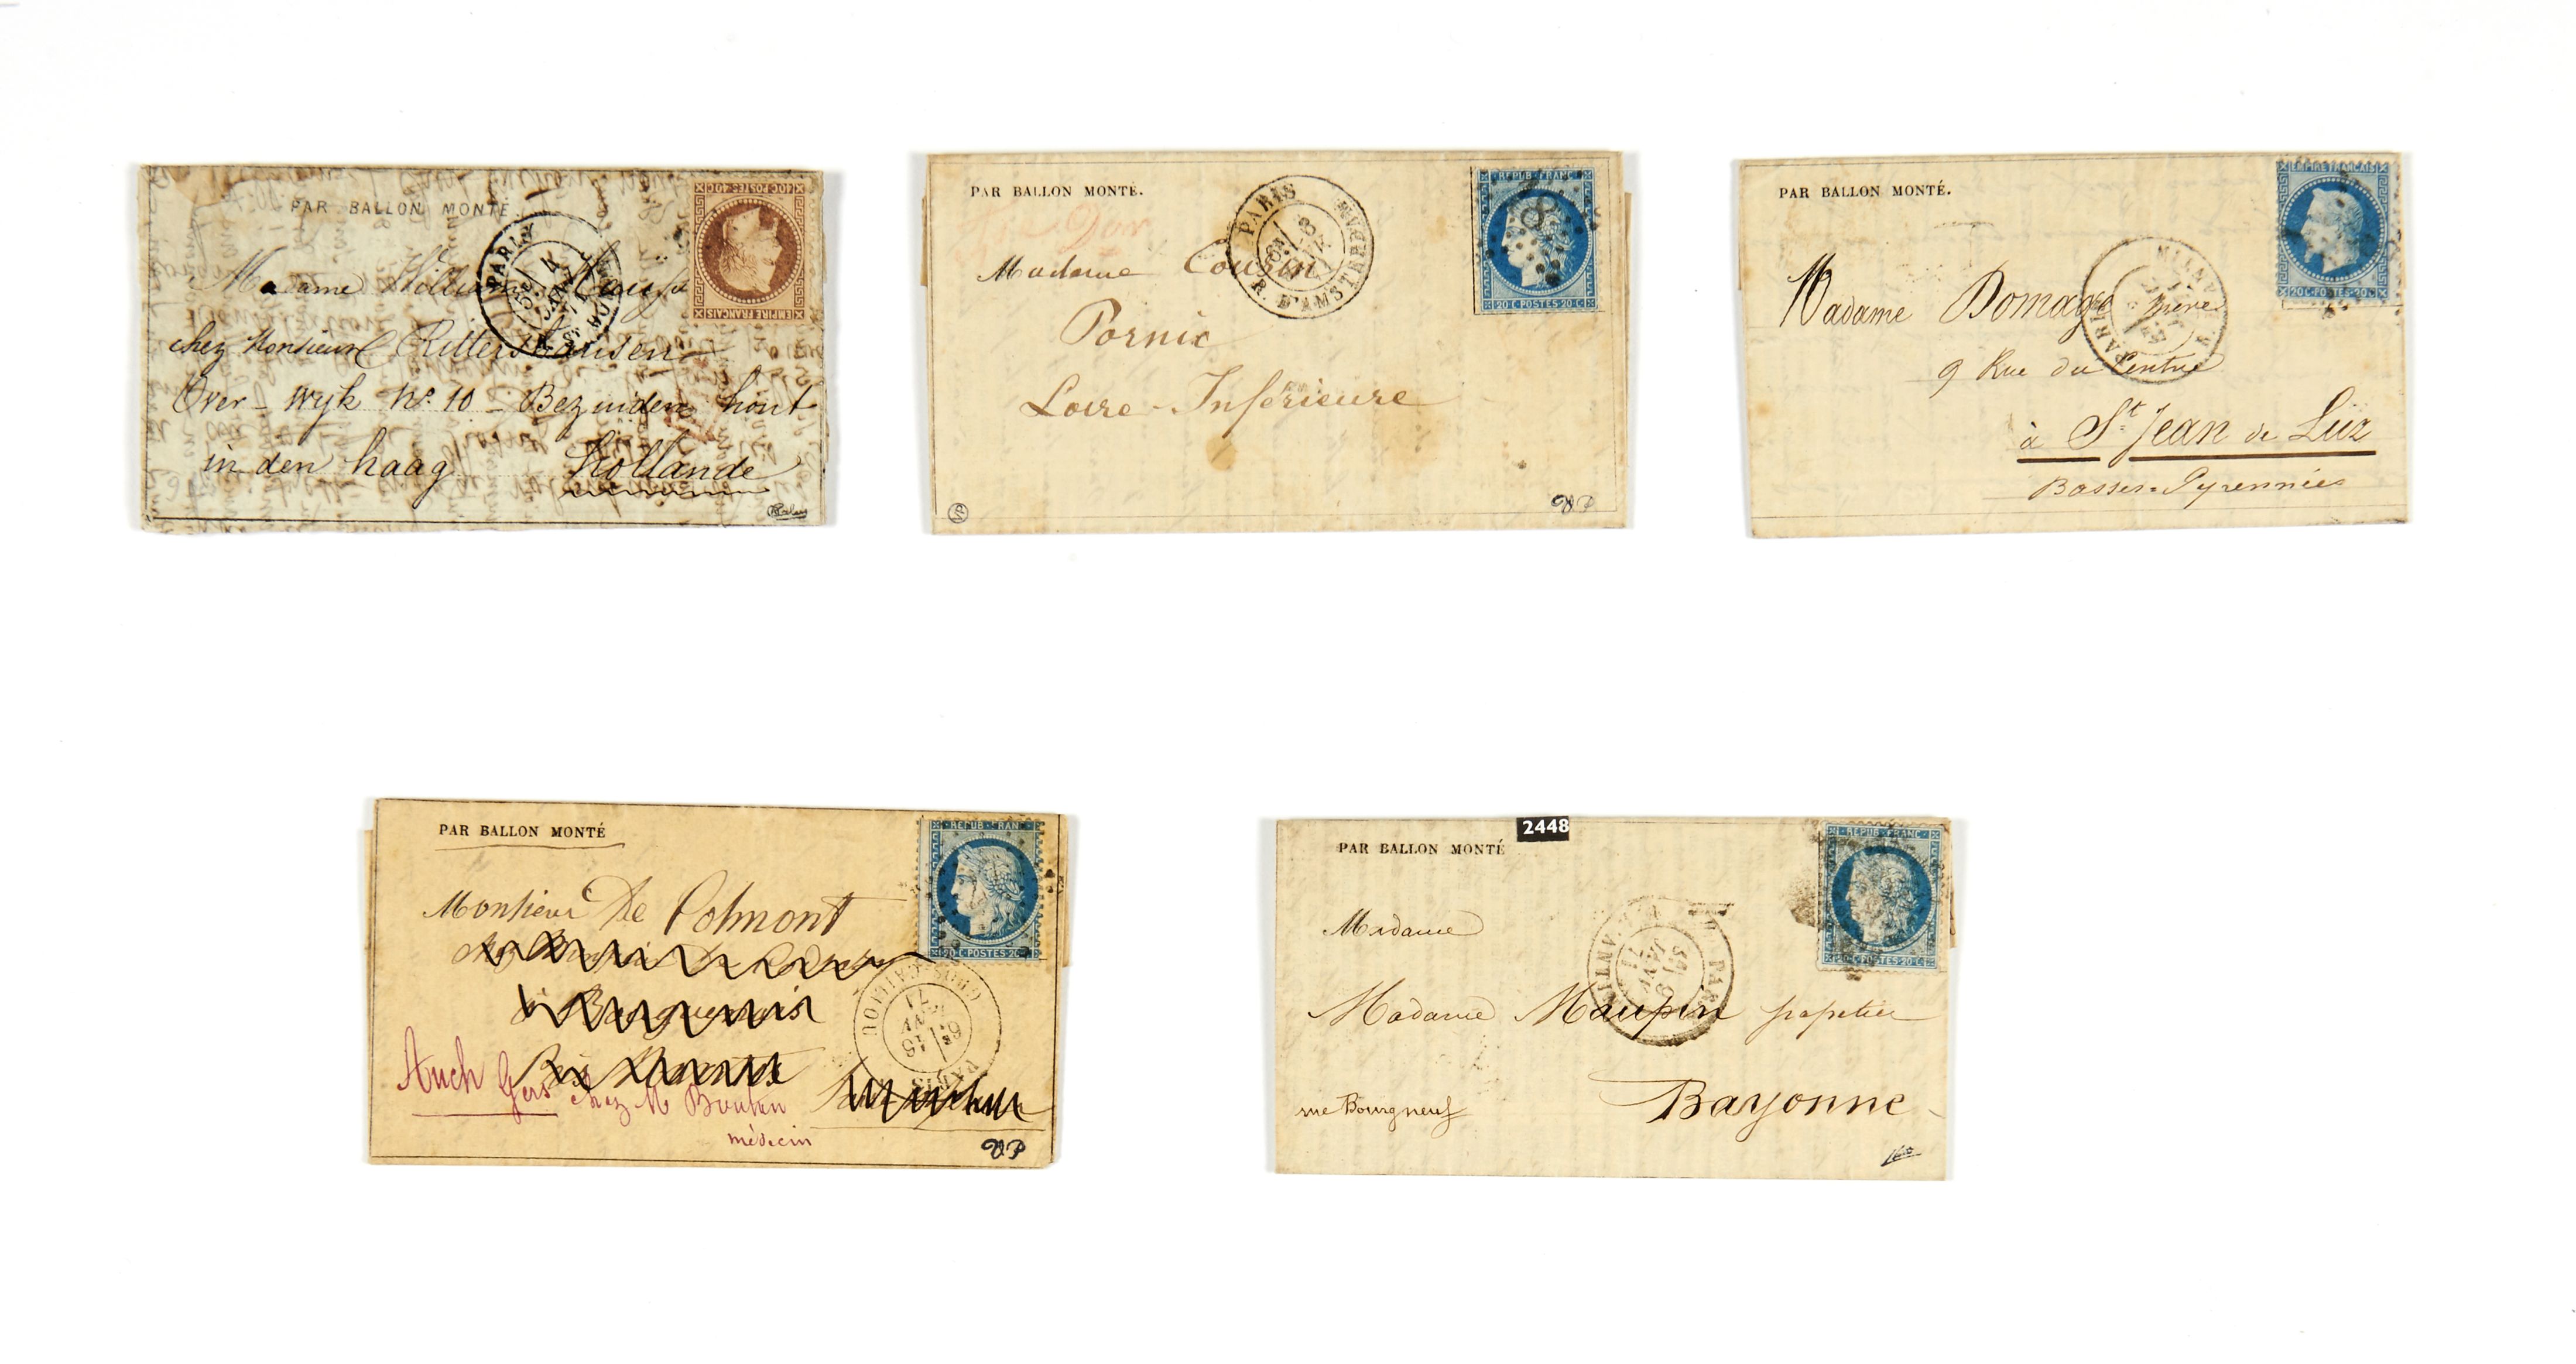 PAR BALLON MONTÉ.
40C POSTES 40C
EMPIRE FRANÇAIS
PARIS
Madame William
chez Monsieur Rittershausen
Over-Wyk No. 10 - Bezuiden hout
in den haag Hollande
PAR BALLON MONTÉ.
PARIS
R. D'AMSTERDAM
REPUB FRANC
20 C POSTES 20 C
Madame Cousin
Pornic
Loire-Inférieure
V.P
PAR BALLON MONTÉ.
EMPIRE FRANÇAIS
20C POSTES 20C
PARIS
Madame Domage mère
9 Rue du Centre
à St. Jean de Luz
Basses-Pyrennées
PAR BALLON MONTÉ
REPUB FRAN
20 C POSTES 20 C
PARIS
Monsieur De Polmont
Auch Gers chez M
médecin
V.P
2448
PAR BALLON MONTÉ
REPUB FRANC
20 C POSTES 20 C
9
JANV
71
Madame
Madame Maupin papetier
rue Bourgneuf Bayonne